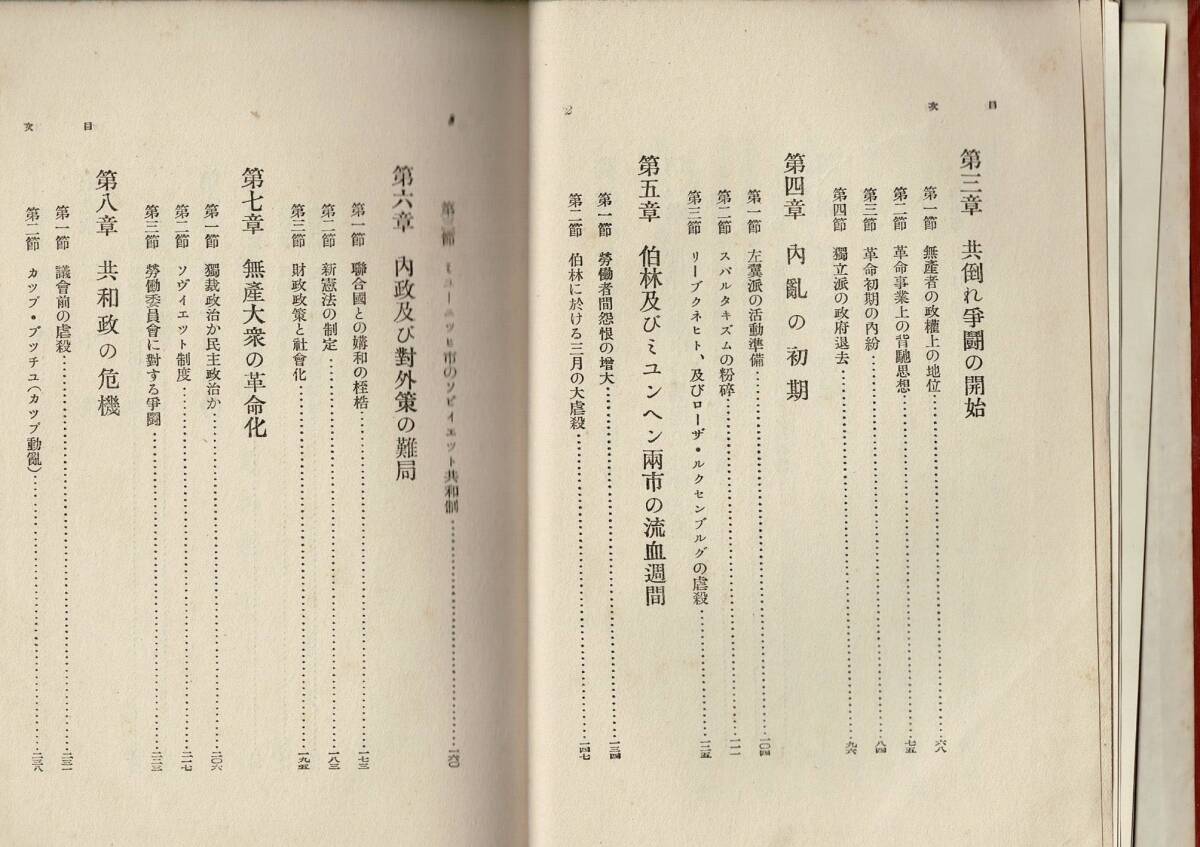 目次
2
第三章 共倒れ爭鬪の開始
第一節 無產者の政權上の地位……六八
第二節 革命事業上の背馳思想……七五
第三節 革命初期の內紛……八四
第四節 獨立派の政府退去……九六
第四章 內亂の初期
第一節 左翼派の活動準備……一〇四
第二節 スパルタキズムの粉碎……一一一
第三節 リーブクネヒト、及びローザ・ルクセンブルグの虐殺……一二五
第五章 伯林及びミユンヘン兩市の流血週間
第一節 勞働者間怨恨の增大……一三四
第二節 伯林に於ける三月の大虐殺……一四七
目次
第三節 ミューニッヒ市のソビイエット共和制……一六〇
第六章 內政及び對外策の難局
第一節 聯合國との媾和の桎梏……一七三
第二節 新憲法の制定……一八三
第三節 財政政策と社會化……一九五
第七章 無產大衆の革命化
第一節 獨裁政治か民主政治か……二〇六
第二節 ソヴィエット制度……二一七
第三節 勞働委員會に對する爭鬪……二二三
第八章 共和政の危機
第一節 議會前の虐殺……二三一
第二節 カップ・プッチユ(カップ動亂)……二三八